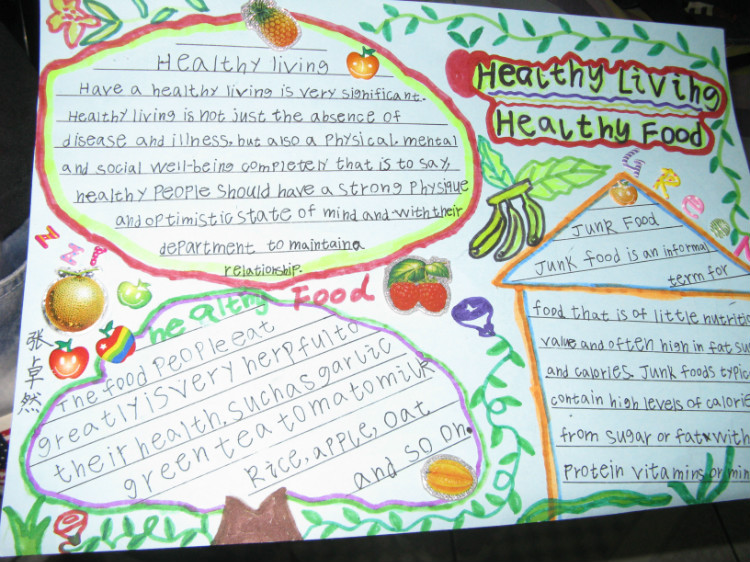 Healthy Living
Healthy Food
Healthy living
Have a healthy living is very significant.
Healthy living is not just the absence of
disease and illness. but also a physical. mental
and social well-being completely that is to say,
healthy people should have a strong physique
and optimistic state of mind and with their
department to maintain a
relationship.
张卓然
healthy Food
The food people eat
greatly is very herpful to
their health. such as garlic
green tea tomato milk
Rice, apple, oat
and so on.
Junk Food
Junk food is an informal
term for
food that is of little nutritio
value and often high in fat su
and calories. Junk foods typic
contain high levels of calorie
from sugar or fat with
protein vitamins or min